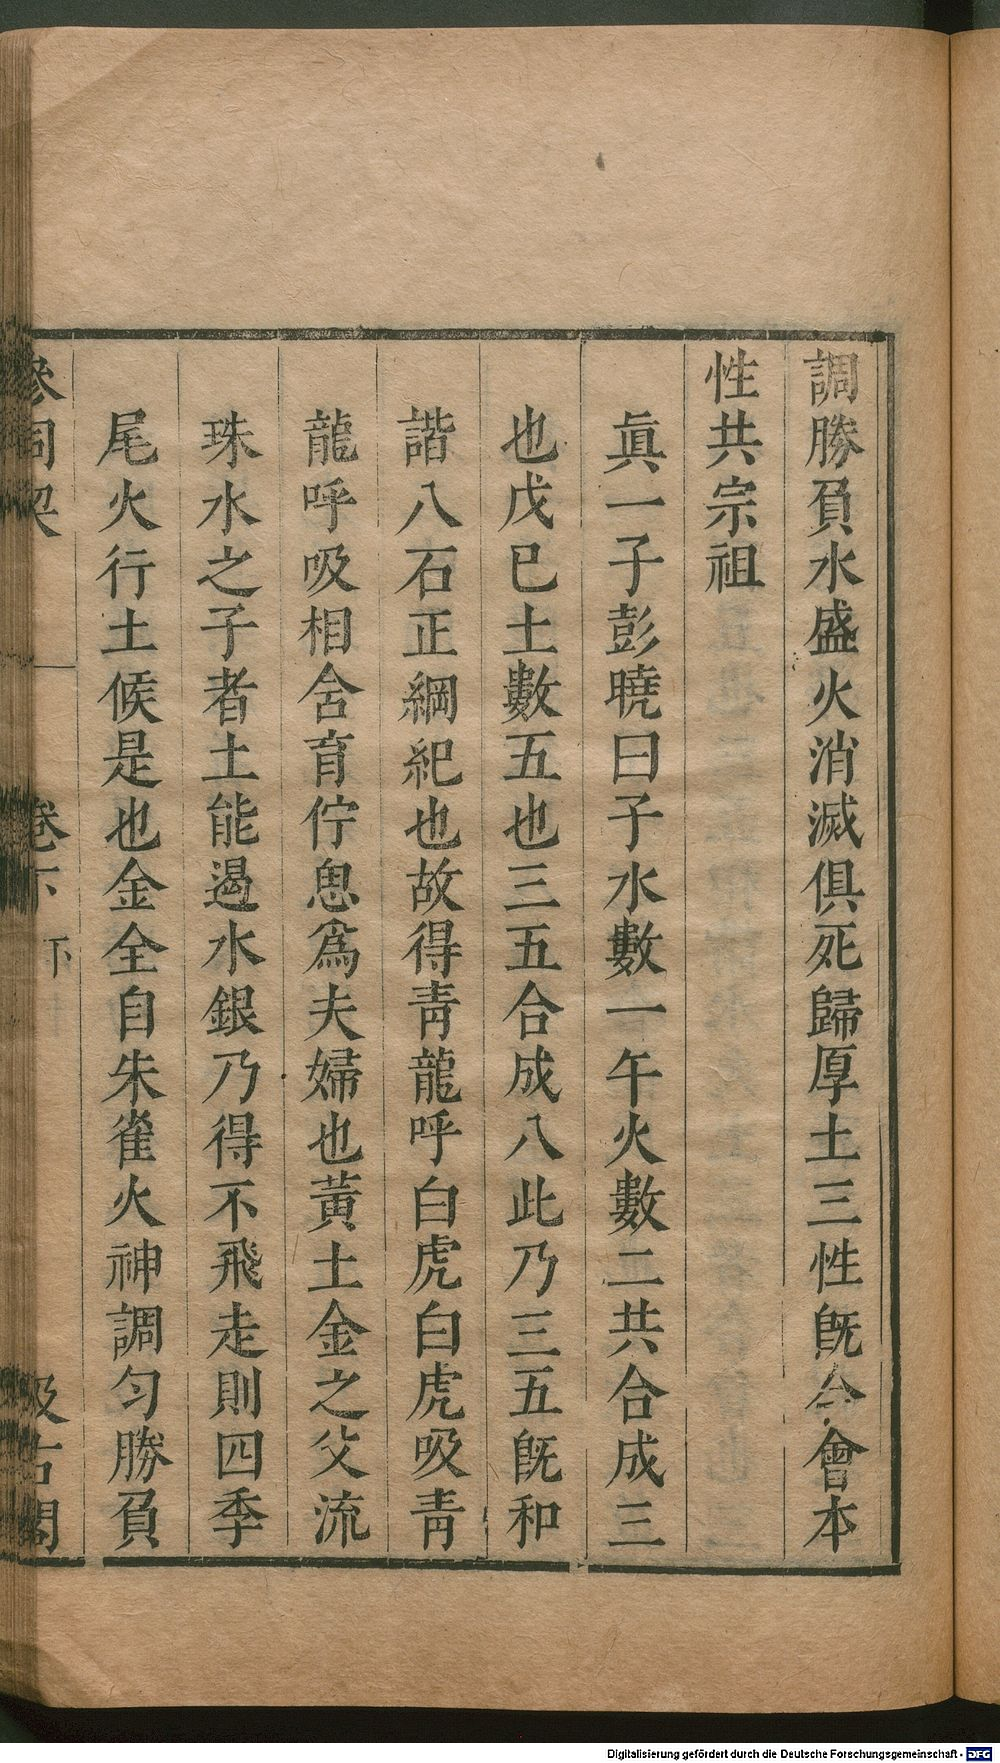 調勝負水盛火消滅俱死歸厚土三性旣合會本
性共宗祖
眞一子彭曉曰子水數一午火數二共合成三
也戊巳土數五也三五合成八此乃三五旣和
諧八石正綱紀也故得靑龍呼白虎白虎吸靑
龍呼吸相含育佇思爲夫婦也黃土金之父流
珠水之子者土能遏水銀乃得不飛走則四季
尾火行土候是也金全自朱雀火神調匀勝負
參同契 卷下下 汲古閣
Digitalisierung gefördert durch die Deutsche Forschungsgemeinschaft - DFG